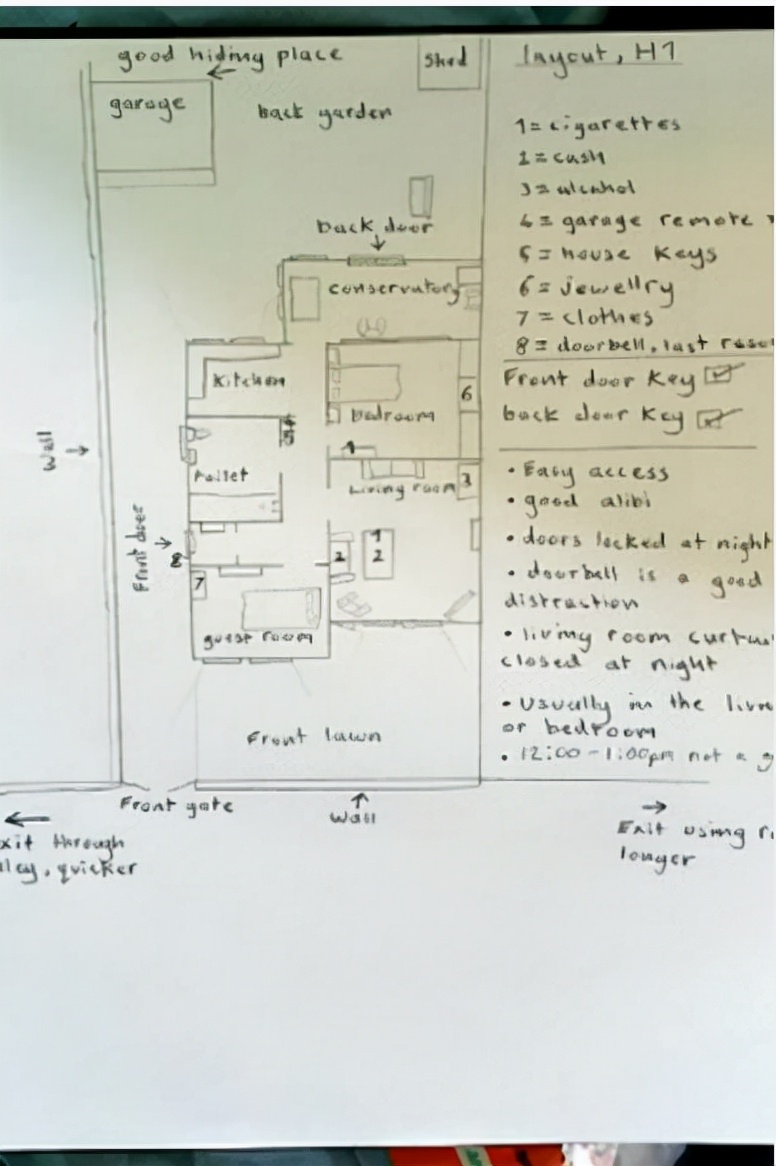 good hiding place
shed
garage
back garden
back door
conservatory
Kitchen
bedroom
6
1
Toilet
Living room
3
wall
Front door
8
2
1
2
7
guest room
Front lawn
Front gate
wall
xit through
lley, quicker
Exit using
longer
layout, H1
1= cigarettes
2= cash
3= alcohol
4= garage remote
5= house keys
6= jewellry
7= clothes
8= doorbell, last
Front door key
back door key
• Easy access
• good alibi
• doors locked at night
• doorball is a good
distraction
• living room
closed at night
• Usually in the
or bedroom
• 12:00 - 1:00pm not a